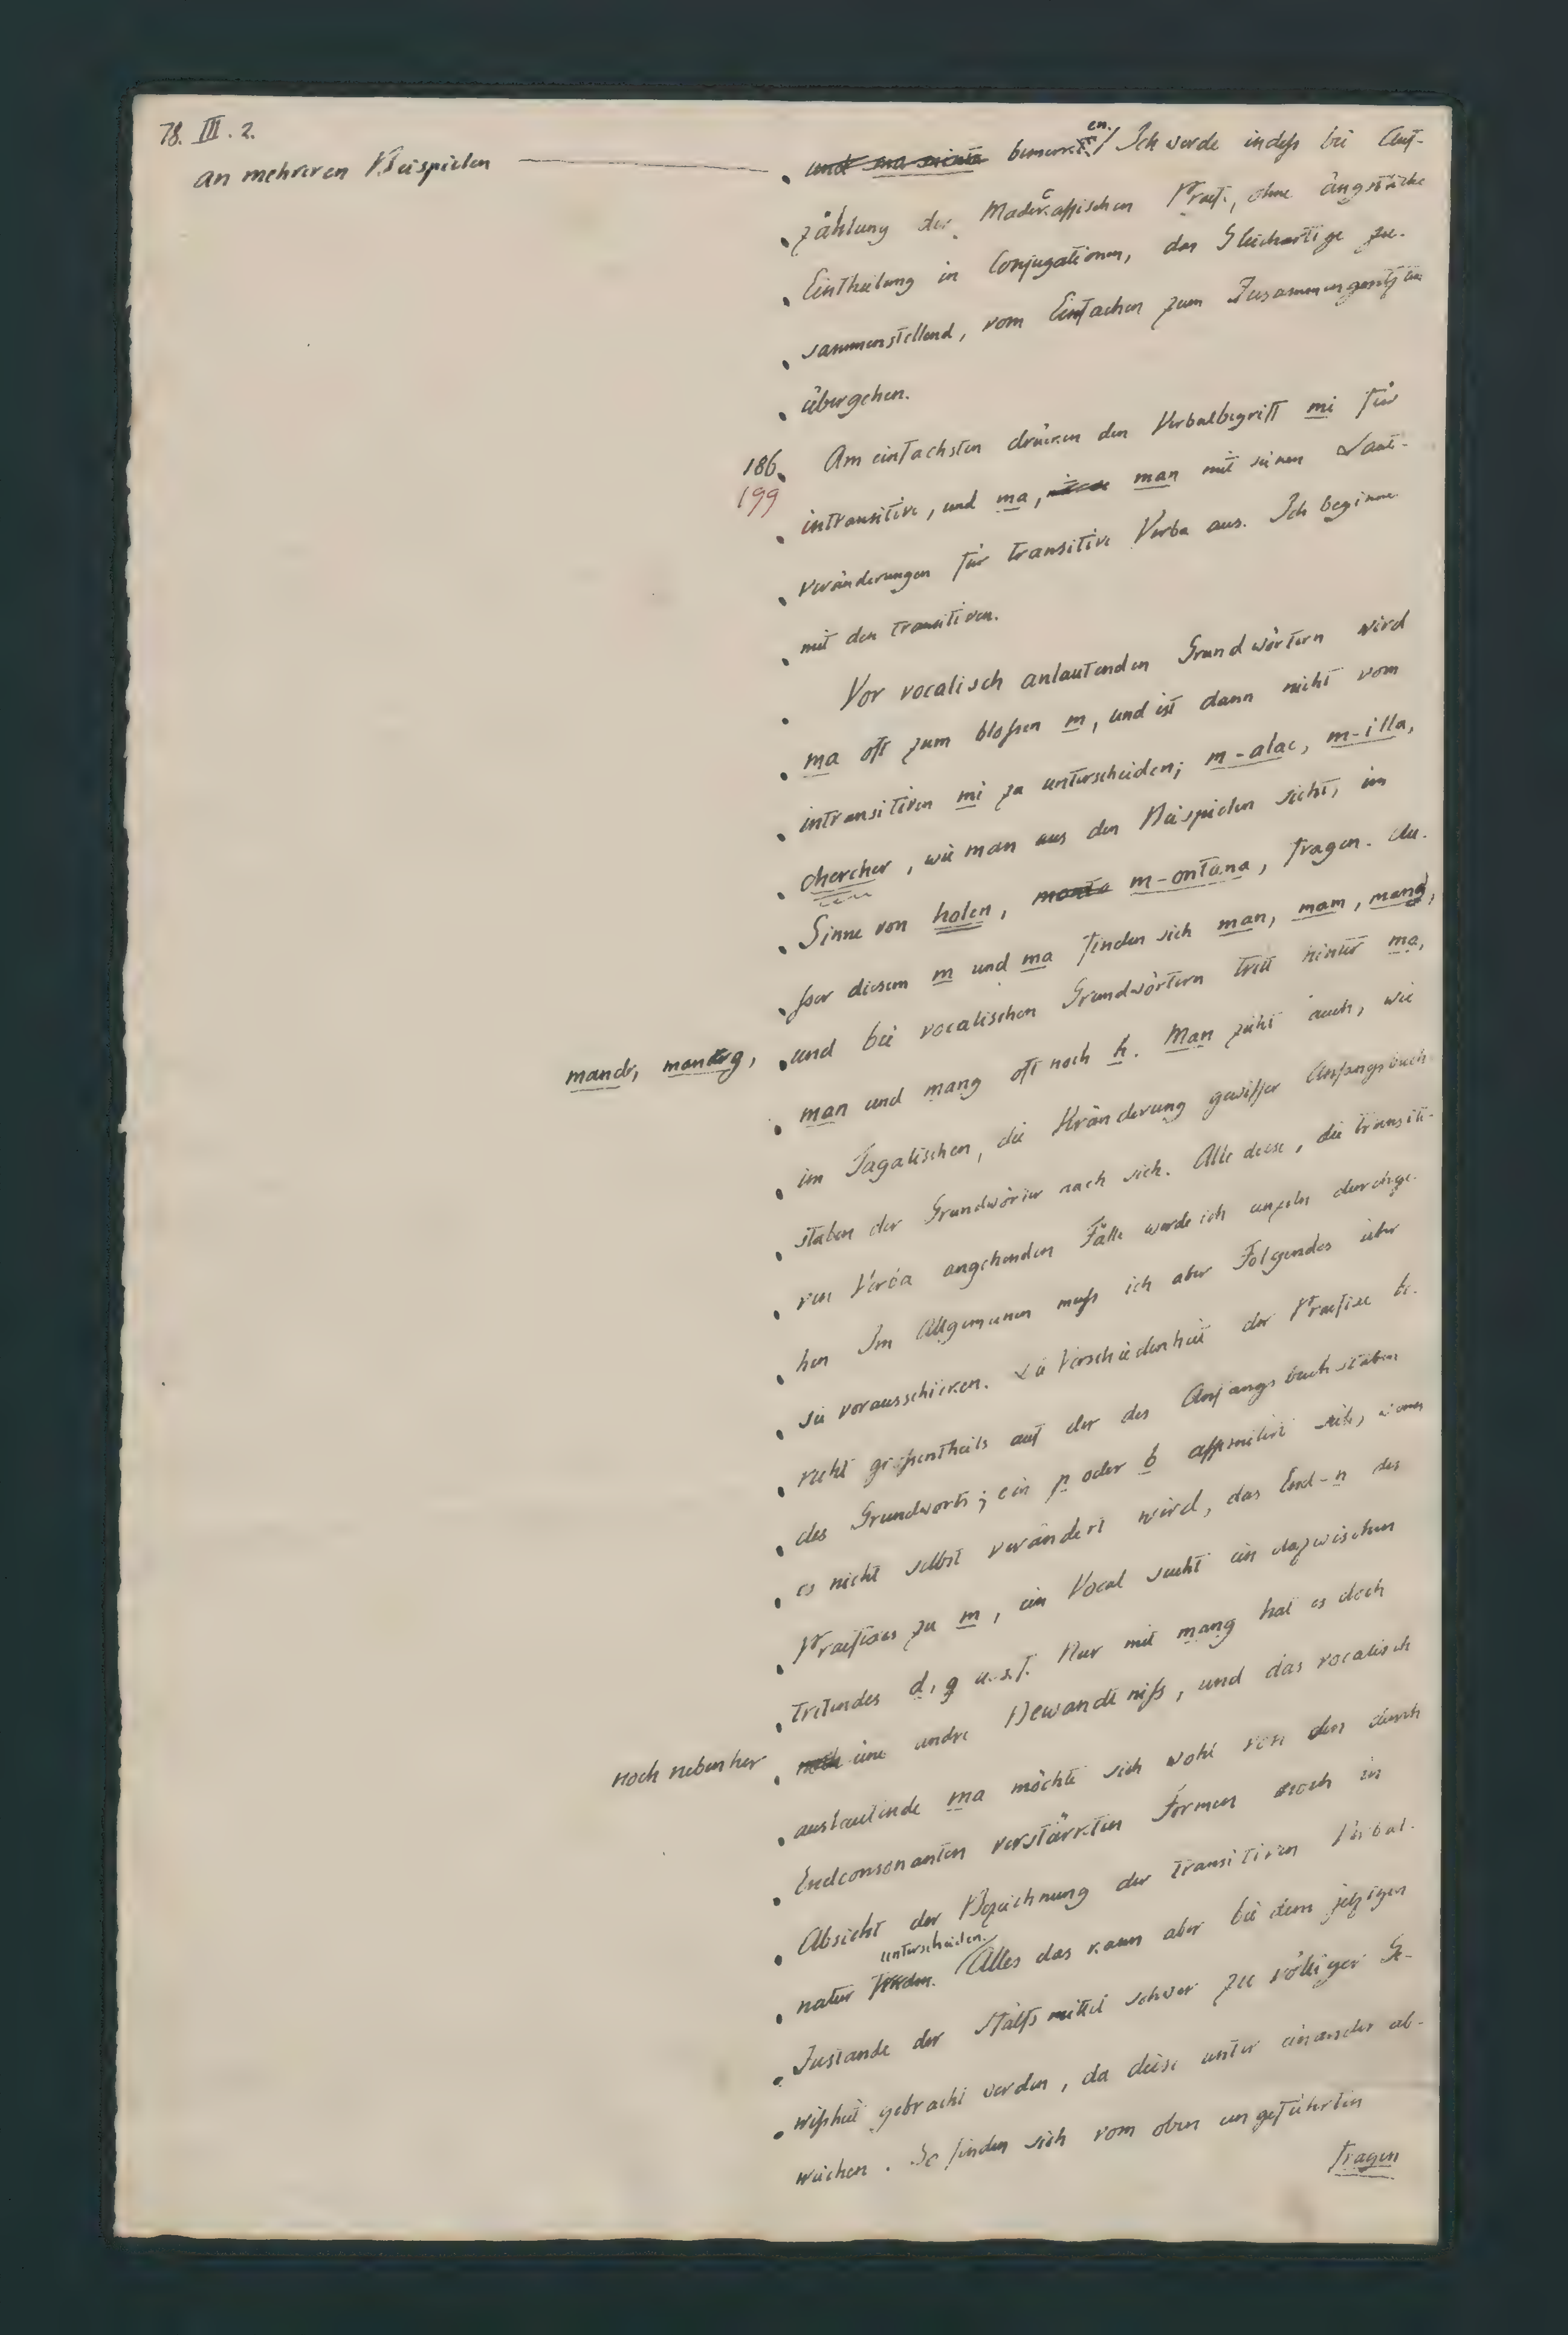 78. III. 2.
an mehreren Beispielen
und ma bemerken. Ich werde indeß bei Auf-
zählung der Madecassischen Praef., ohne ängstliche
Eintheilung in Conjugationen, das Gleichartige zu-
sammenstellend, vom Einfachen zum Zusammengesetzten
übergehen.
186.
199
Am einfachsten drücken den Verbalbegriff mi für
intransitive, und ma, man mit seinen Laut-
veränderungen für transitive Verba aus. Ich beginne
mit den transitiven.
Vor vocalisch anlautenden Grundwörtern wird
ma oft zum bloßen m, und ist dann nicht vom
intransitiven mi zu unterscheiden; m-alac, m-illa,
chercher, wie man aus den Beispielen sieht, im
Sinne von holen, m-ontana, fragen. Au-
ßer diesem m und ma finden sich man, mam, mang,
mandr, mandrg,
und bei vocalischen Grundwörtern tritt hinter ma,
man und mang oft noch h. Man zieht auch, wie
im Tagalischen, die Veränderung gewisser Anfangsbuch-
staben der Grundwörter nach sich. Alle diese, die transiti-
ven Verba angehenden Fälle werde ich einzeln durchge-
hen. Im Allgemeinen muß ich aber Folgendes über
sie vorausschicken. Die Verschiedenheit der Praefixe be-
ruht großentheils auf der des Anfangsbuchstaben
des Grundworts; ein p oder b assimilirt sich, wenn
es nicht selbst verändert wird, das End-n des
Praefixes zu m, ein Vocal sucht ein dazwischen
tretendes d, g u.s.f. Nur mit mang hat es doch
noch nebenher
noch eine andre Bewandtniß, und das vocalisch
auslautende ma möchte sich wohl von den durch
Endconsonanten verstärkten Formen noch in
Absicht der Bezeichnung der transitiven Verbal-
unterscheiden.
natur Alles das kann aber bei dem jetzigen
Zustande der Hülfsmittel schwer zu völliger Ge-
wißheit gebracht werden, da diese unter einander ab-
weichen. So finden sich vom oben angeführten
fragen